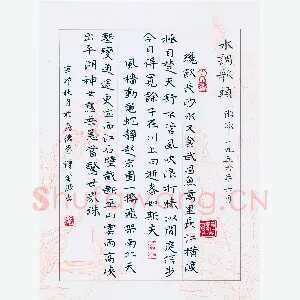 水調歌頭 游泳 一九五六年六月
纔飲長沙水又食武昌魚萬里長江橫渡
極目楚天舒不管風吹浪打勝似閒庭信步
今日得寬餘子在川上曰逝者如斯夫
風檣動龜蛇靜起宏圖一橋飛架南北天
塹變通途更立西江石壁截斷巫山雲雨高峽
出平湖神女應無恙當驚世界殊